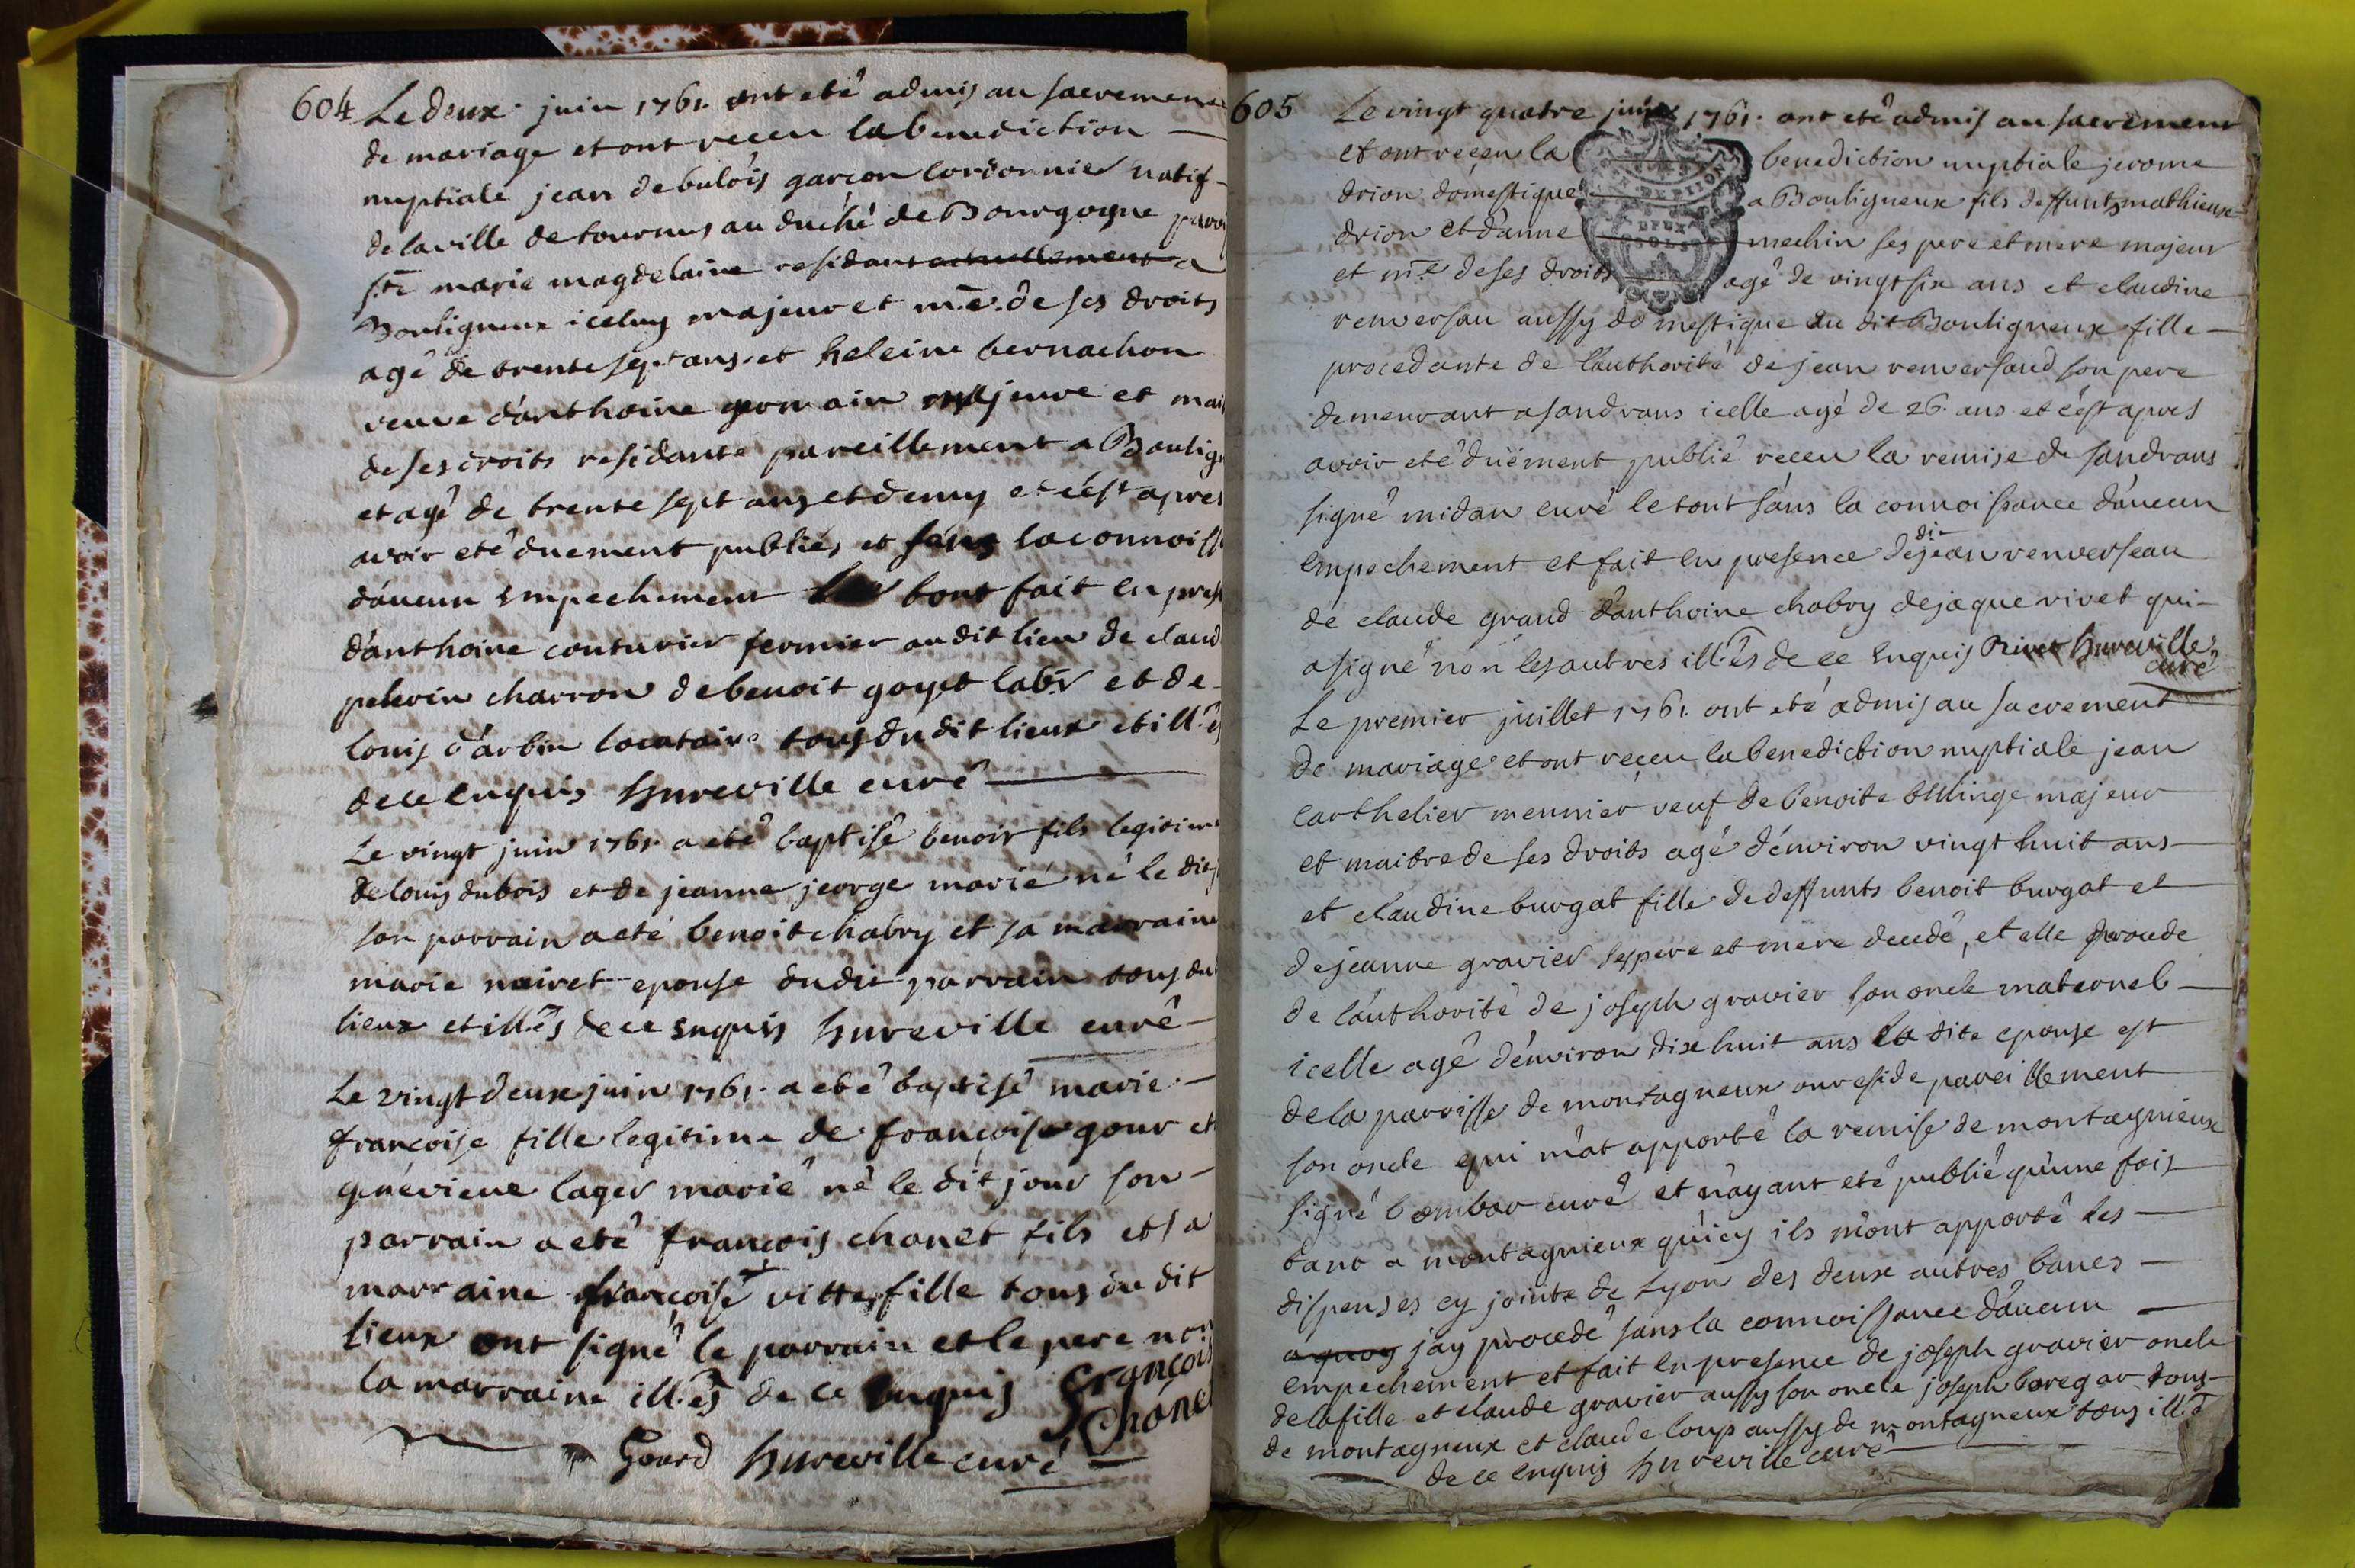 604
Le deux juin 1761. ont eté admis au sacremen
de mariage et ont receu la benediction
nuptiale jean debulois garçon cordonnier natif
de la ville de tournus au duché de Bourgogne paroi
ste marie magdelaine residant actuellement a
Bouligneux iceluy majeur et m.e de ses droits
agé de trente sept ans et heleine bernachon
veuve d'anthoine germain majeure et mai
de ses droits residante pareillement a Boulig
et agé de trente sept ans et demy et c'est apres
avoir eté duement publiés et sans la connoiss
d'aucun empechement le tout fait en pres
d'anthoine couturier fermier au dit lieu de claud
pelerin charron de benoit goyet labr et de
louis d'arbin locataire tous du dit lieux et ill.és
de ce enquis hureville curé
Le vingt juin 1761. a eté baptisé benoit fils legitime
de louis dubois et de jeanne jeorge marié né le dit
son parrain a eté benoit chabry et sa marraine
marie nairet epouse du dit parrain tous du
lieux et ill.és de ce enquis hureville curé
Le vingt deux juin 1761. a eté baptisé marie
francoise fille legitime de françois gour et
genevieve lager marié né le dit jour son
parrain a eté françois chanet fils et sa
marraine françoise vitte fille tous du dit
lieux ont signé le parrain et le pere non
la marraine ill.és de ce enquis François
Chane
Gourd hureville curé
605
Le vingt quatre juin 1761. ont eté admis au sacrement
et ont receu la benediction nuptiale jerome
drion domestique a Bouligneux fils deffunts mathieux
drion et d'anne mechin ses pere et mere majeur
et m.e de ses droits agé de vingt six ans et claudine
renversau aussy domestique du dit Bouligneux fille
procedante de l'authorité de jean renversaud son pere
demeurant a sandrans icelle agé de 26. ans et c'est apres
avoir eté düement publié receu la remise de sandrans
signé midan curé le tout sans la connoissance d'aucun
empechement et fait en presence du dit jean renverseau
de claude grand d'anthoine chabry de jaque rivet qui
a signé non les autres ill.és de ce enquis Rivet hureville
curé
Le premier juillet 1761. ont eté admis au sacrement
de mariage et ont receu la benediction nuptiale jean
carthelier meunier veuf de benoite bellinge majeur
et maitre de ses droits agé d'environ vingt huit ans
et claudine burgat fille de deffunts benoit burgat et
de jeanne gravier ses pere et mere decedé, et elle procede
de l'authorité de joseph gravier son oncle maternel
icelle agé d'environ dix huit ans la dite epouse est
de la paroisse de montagneux ou reside pareillement
son oncle qui m'at apporté la remise de montagnieux
signé bombar curé et n'ayant eté publié qu'une fois
tant a montagnieux qu'icy ils m'ont apporté les
dispenses cy jointe de Lyon des deux autres bancs
a quoy j'ay procedé sans la connoissance d'aucun
empechement et fait en presence de joseph gravier oncle
de la fille et claude gravier aussy son oncle joseph baregar tous
de montagneux et claude loup aussy de montagneux tous ill.és
de ce enquis hureville curé